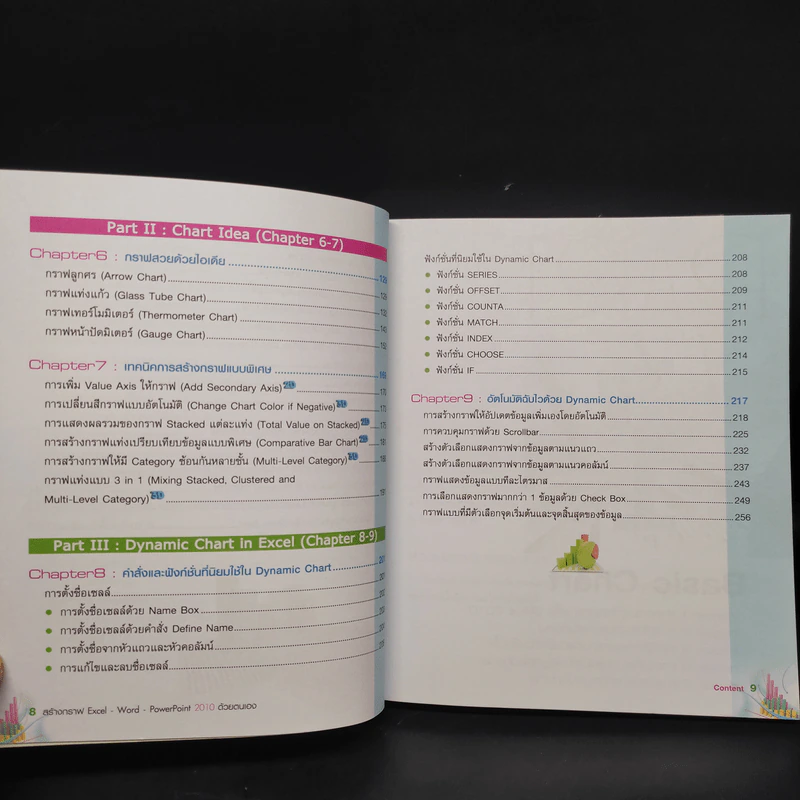 Part II : Chart Idea (Chapter 6-7)
Chapter6 : กราฟสวยด้วยไอเดีย
กราฟลูกศร (Arrow Chart)
กราฟแท่งแก้ว (Glass Tube Chart)
กราฟเทอร์โมมิเตอร์ (Thermometer Chart)
กราฟหน้าปัดมิเตอร์ (Gauge Chart)
Chapter7 : เทคนิคการสร้างกราฟแบบพิเศษ
การเพิ่ม Value Axis ให้กราฟ (Add Secondary Axis)
การเปลี่ยนสีกราฟแบบอัตโนมัติ (Change Chart Color if Negative)
การแสดงผลรวมของกราฟ Stacked แต่ละแท่ง (Total Value on Stacked)
การสร้างกราฟแท่งเปรียบเทียบข้อมูลแบบพิเศษ (Comparative Bar Chart)
การสร้างกราฟให้มี Category ซ้อนกันหลายชั้น (Multi-Level Category)
กราฟแท่งแบบ 3 in 1 (Mixing Stacked, Clustered and
Multi-Level Category)
Part III : Dynamic Chart in Excel (Chapter 8-9)
Chapter8 : คำสั่งและฟังก์ชั่นที่นิยมใช้ใน Dynamic Chart
การตั้งชื่อเซลล์
การตั้งชื่อเซลล์ด้วย Name Box
การตั้งชื่อเซลล์ด้วยคำสั่ง Define Name
การตั้งชื่อจากหัวแถวและหัวคอลัมน์
การแก้ไขและลบชื่อเซลล์
8 สร้างกราฟ Excel - Word - PowerPoint 2010 ด้วยตนเอง
ฟังก์ชั่นที่นิยมใช้ใน Dynamic Chart 208
ฟังก์ชั่น SERIES 208
ฟังก์ชั่น OFFSET 209
ฟังก์ชั่น COUNTA 211
ฟังก์ชั่น MATCH 211
ฟังก์ชั่น INDEX 212
ฟังก์ชั่น CHOOSE 214
ฟังก์ชั่น IF 215
Chapter9 : อัตโนมัติฉับไวด้วย Dynamic Chart 217
การสร้างกราฟให้อัปเดตข้อมูลเพิ่มเองโดยอัตโนมัติ 218
การควบคุมกราฟด้วย Scrollbar 225
สร้างตัวเลือกแสดงกราฟจากข้อมูลตามแนวแถว 232
สร้างตัวเลือกแสดงกราฟจากข้อมูลตามแนวคอลัมน์ 237
กราฟแสดงข้อมูลแบบทีละไตรมาส 243
การเลือกแสดงกราฟมากกว่า 1 ข้อมูลด้วย Check Box 249
กราฟแบบที่มีตัวเลือกจุดเริ่มต้นและจุดสิ้นสุดของข้อมูล 256
Content 9